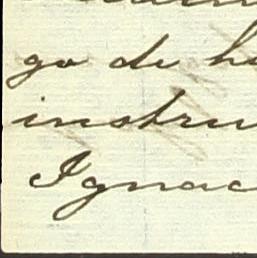 go de h
instru
Ignac